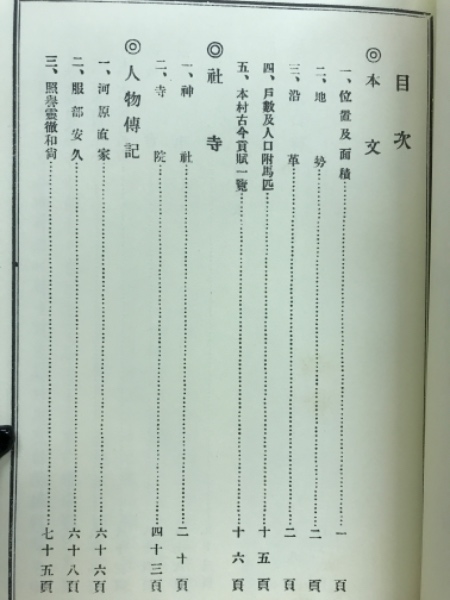 目次
◎本文
一、位置及面積……一頁
二、地勢……二頁
三、沿革……二頁
四、戸數及人口附馬匹……十五頁
五、本村古今貢賦一覽……十六頁
◎社寺
一、神社……二十頁
二、寺院……四十三頁
◎人物傳記
一、河原直家……六十六頁
二、服部安久……六十八頁
三、照譽靈徹和尙……七十五頁